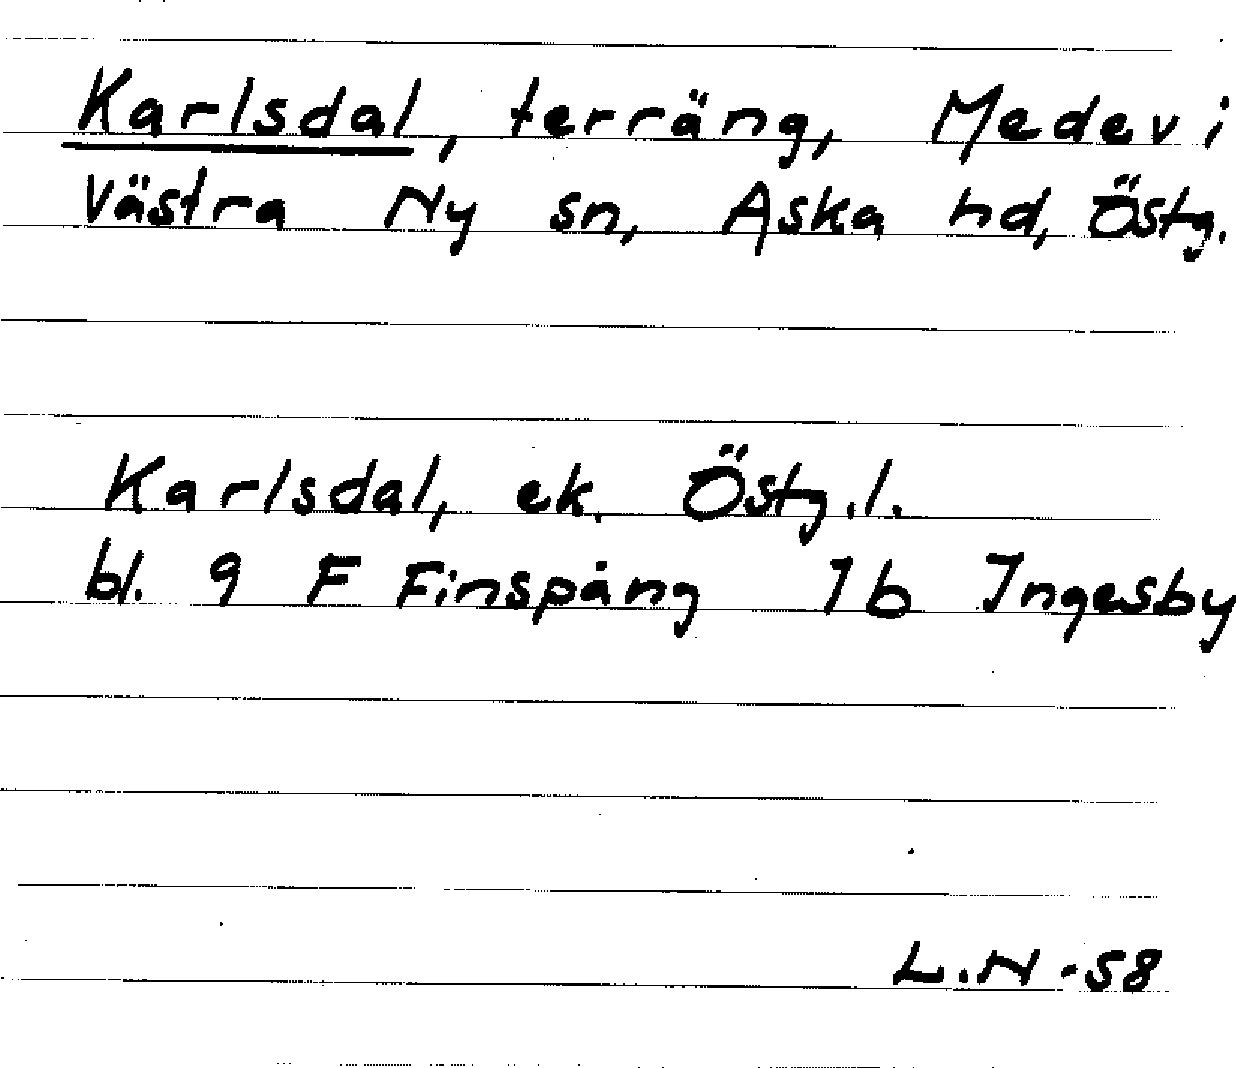 Karlsdal, terräng, Medevi
Västra Ny sn, Aska hd, Östg.
Karlsdal, ek. Östg.l.
bl. 9 F Finspång 1b Ingesby
L.N -58